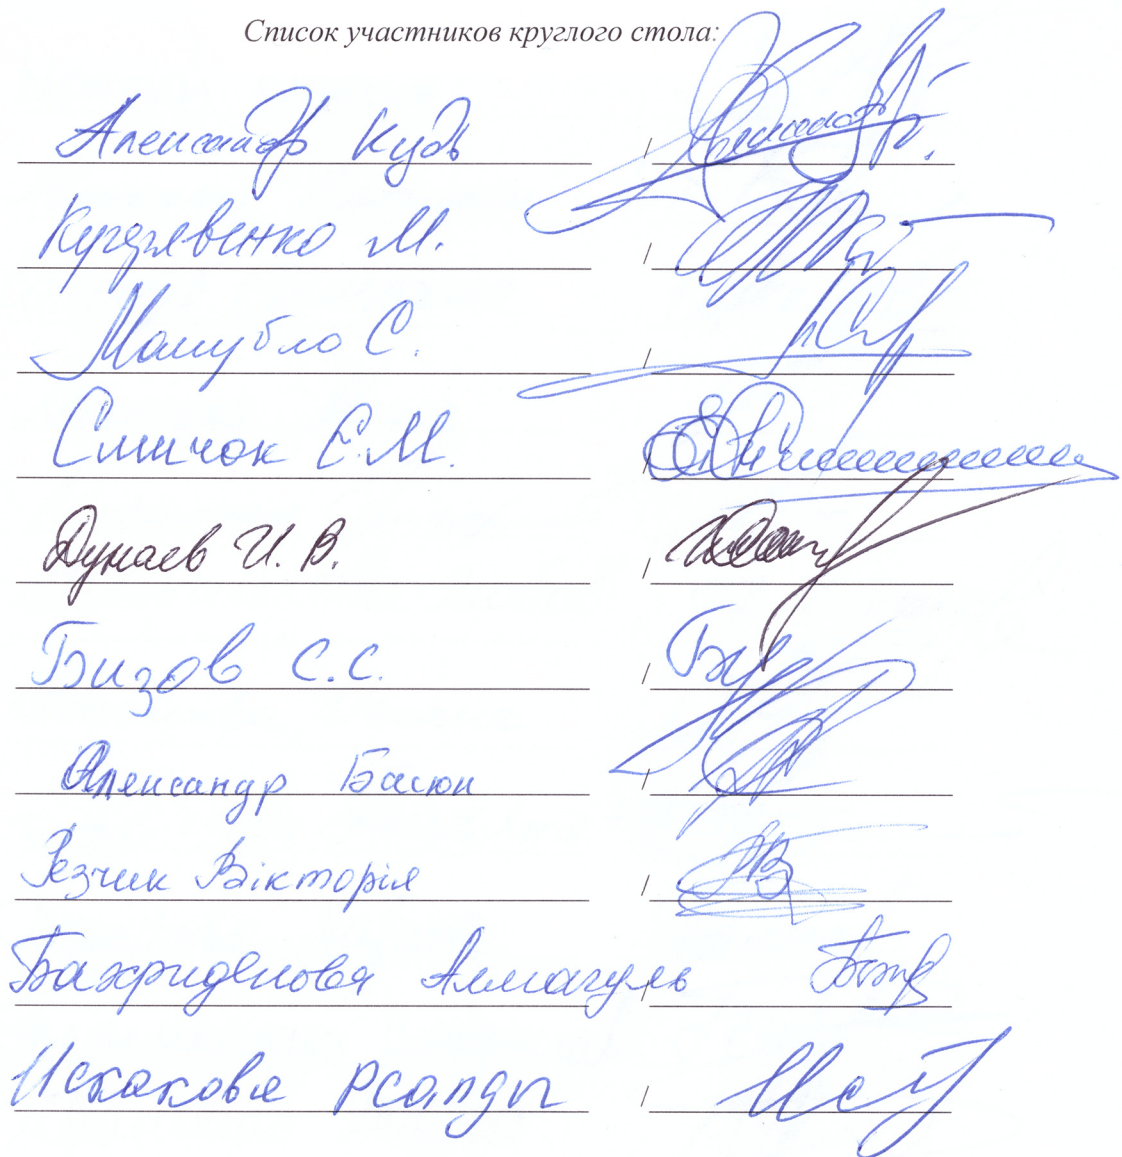 Список участников круглого стола:
Александр Кудь /
Кудрявенко М. /
С. /
Смичок Е.М. /
Дунаев И. В. /
Бизов С.С. /
Александр Басюк /
Резчик Вікторія /
Бахриденовая Алмагуль /
Искакова Рсалды /